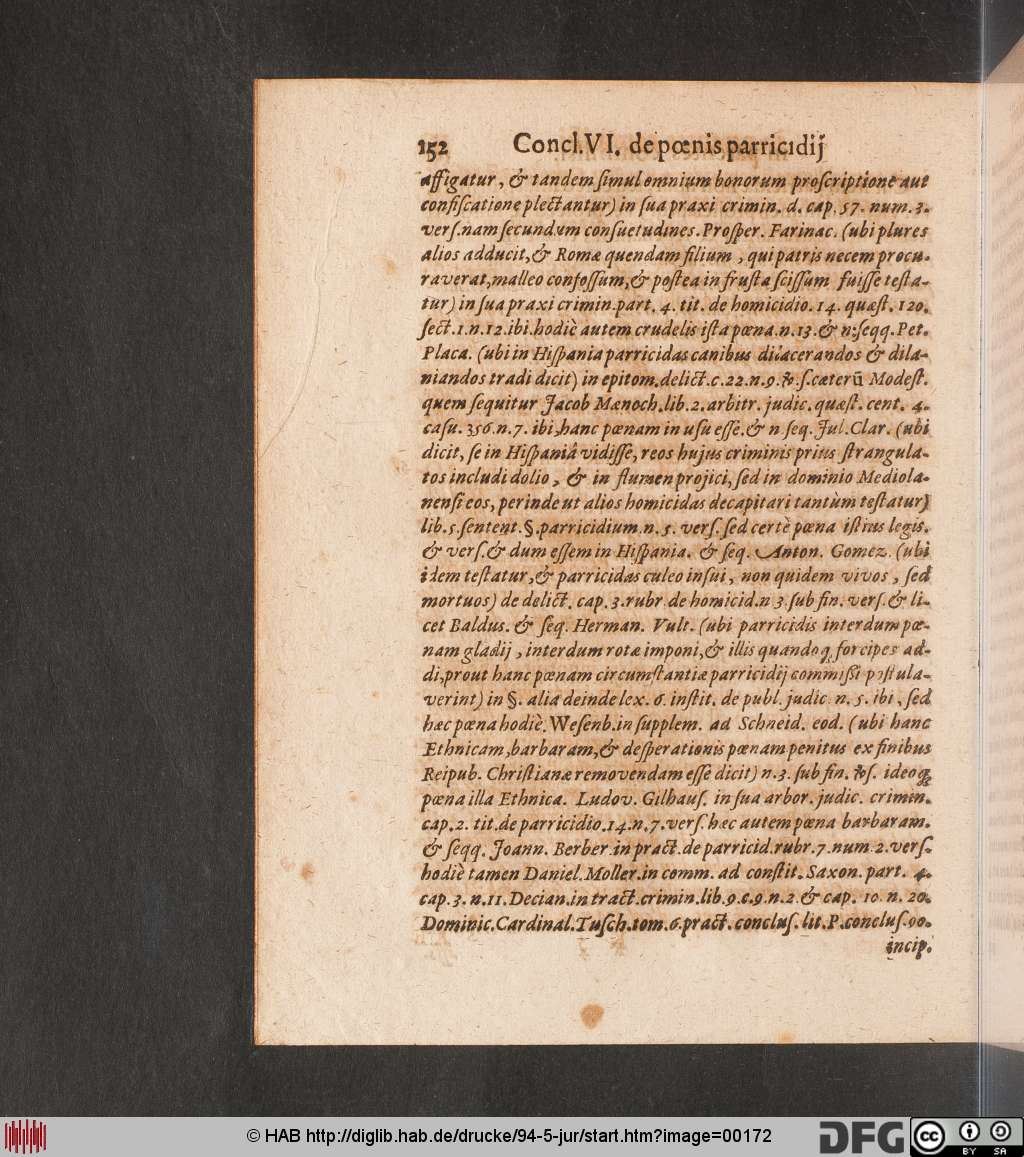 152 Concl.VI. de pœnis parricidij
affigatur, & tandem ſimul omnium bonorum proſcriptione aut
confiſcatione plectantur) in ſua praxi crimin. d. cap. 57. num. 3.
verſ. nam ſecundum conſuetudines. Proſper. Farinac. (ubi plures
alios adducit, & Romæ quendam filium, qui patris necem procu-
raverat, malleo confoſſum, & poſtea in fruſta ſciſſum fuiſſe teſta-
tur) in ſua praxi crimin. part. 4. tit. de homicidio. 14. quæſt. 120.
ſect. 1. n. 12. ibi. hodiè autem crudelis iſta pœna. n. 13. & n. ſeqq. Pet.
Placa. (ubi in Hiſpania parricidas canibus dilacerandos & dila-
niandos tradi dicit) in epitom. delict. c. 22. n. 9. ꝟ. ſ. cæterũ Modeſt.
quem ſequitur Jacob Mænoch. lib. 2. arbitr. judic. quæſt. cent. 4.
caſu. 356. n. 7. ibi, hanc pœnam in uſu eſſe. & n ſeq. Jul. Clar. (ubi
dicit, ſe in Hiſpaniâ vidiſſe, reos hujus criminis prius ſtrangula-
tos includi dolio, & in flumen projici, ſed in dominio Mediola-
nenſi eos, perinde ut alios homicidas decapitari tantùm teſtatur)
lib. 5. ſentent. §. parricidium. n. 5. verſ. ſed certè pœna iſtius legis.
& verſ. & dum eſſem in Hiſpania. & ſeq. Anton. Gomez. (ubi
idem teſtatur, & parricidas culeo inſui, non quidem vivos, ſed
mortuos) de delict. cap. 3. rubr. de homicid. n 3. ſub fin. verſ. & li-
cet Baldus. & ſeq. Herman. Vult. (ubi parricidis interdum pœ-
nam gladij, interdum rotæ imponi, & illis quandoq; forcipes ad-
di, prout hanc pœnam circumſtantiæ parricidij commiſſi poſtula-
verint) in §. alia deinde lex. 6. inſtit. de publ. judic. n. 5. ibi, ſed
hæc pœna hodiè. Weſenb. in ſupplem. ad Schneid. eod. (ubi hanc
Ethnicam, barbaram, & deſperationis pœnam penitus ex finibus
Reipub. Chriſtianæ removendam eſſe dicit) n. 3. ſub fin. ꝟſ. ideoq;
pœna illa Ethnica. Ludov. Gilhauſ. in ſua arbor. judic. crimin.
cap. 2. tit. de parricidio. 14. n. 7. verſ. hæc autem pœna barbaram.
& ſeqq. Joann. Berber. in pract. de parricid. rubr. 7. num. 2. verſ.
hodiè tamen Daniel. Moller. in comm. ad conſtit. Saxon. part. 4.
cap. 3. n. 11. Decian. in tract. crimin. lib. 9. c. 9. n. 2. & cap. 10. n. 20.
Dominic. Cardinal. Tuſch. tom. 6. pract. concluſ. lit. P. concluſ. 90.
incip.
© HAB http://diglib.hab.de/drucke/94-5-jur/start.htm?image=00172
DFG
cc BY SA